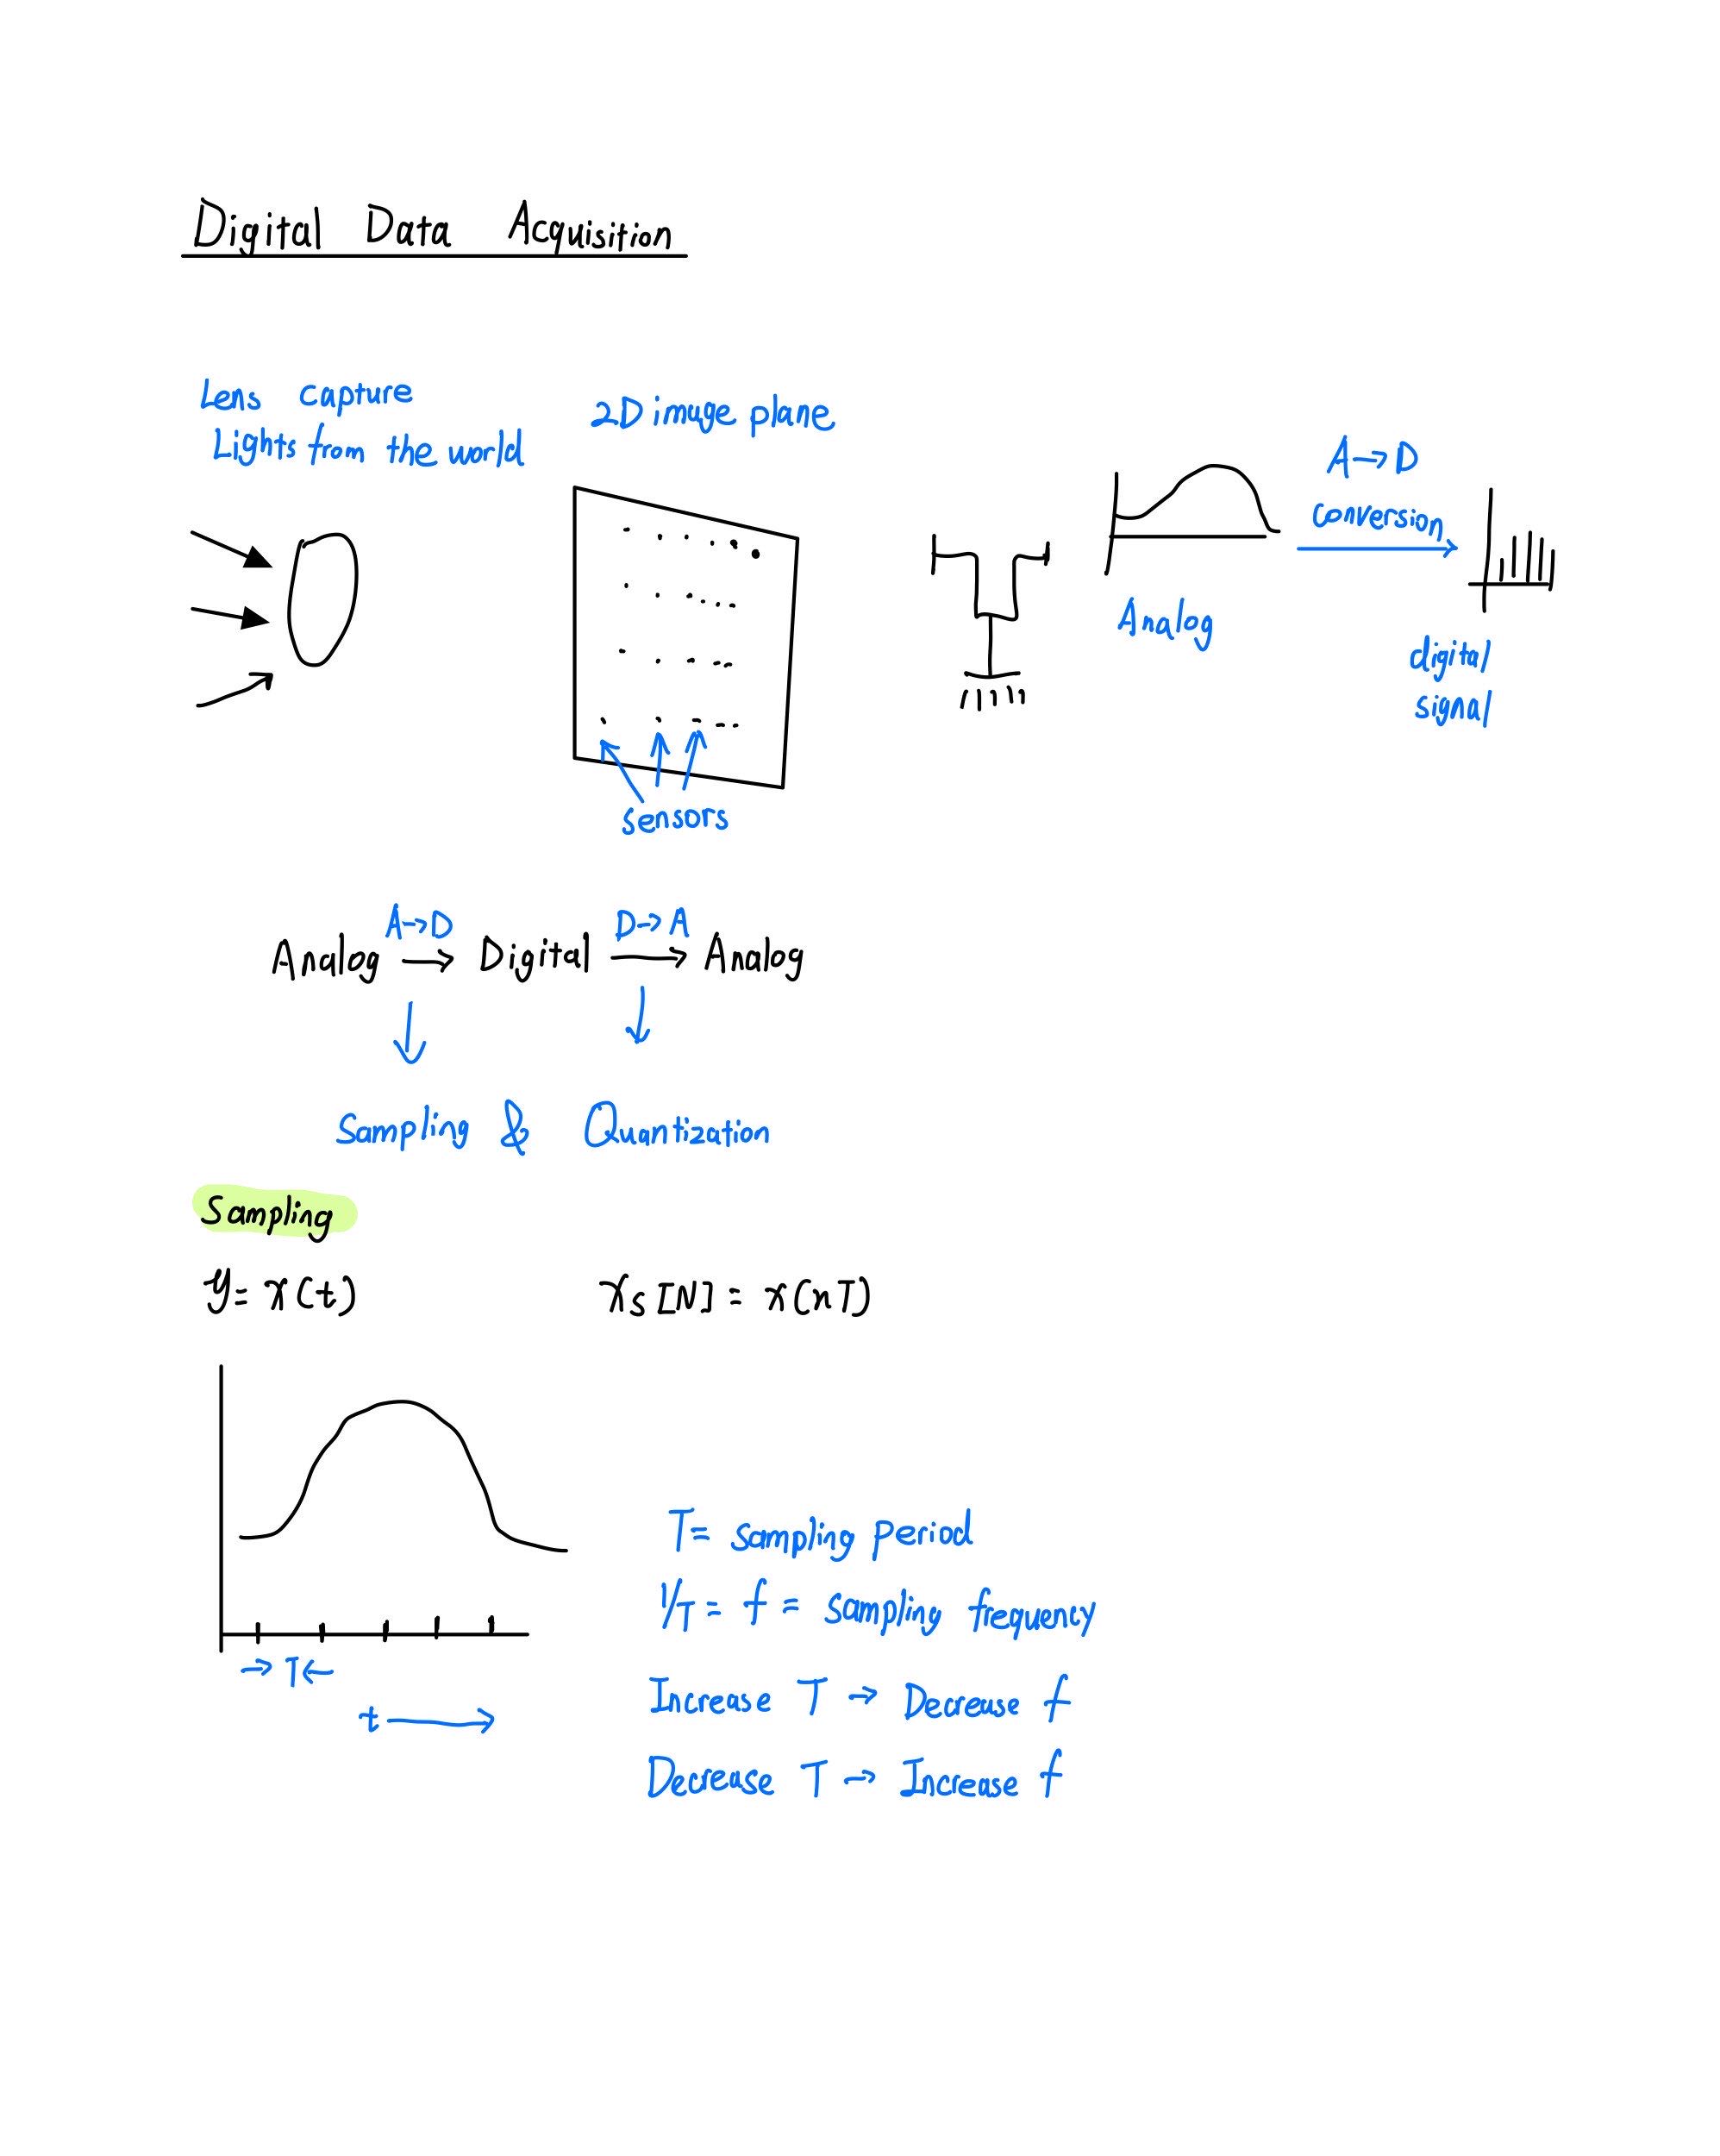 Digital Data Acquisition
Lens capture
Lights from the world
2D image plane
A→D
conversion
Analog
digital
signal
sensors
A→D D→A
Analog → Digital → Analog
Sampling & Quantization
Sampling
y= x(t)
xs[N] = x(nT)
T= sampling period
1/T = f = sampling frequency
→ T ←
t →
Increase T → Decrease f
Decrease T → Increase f